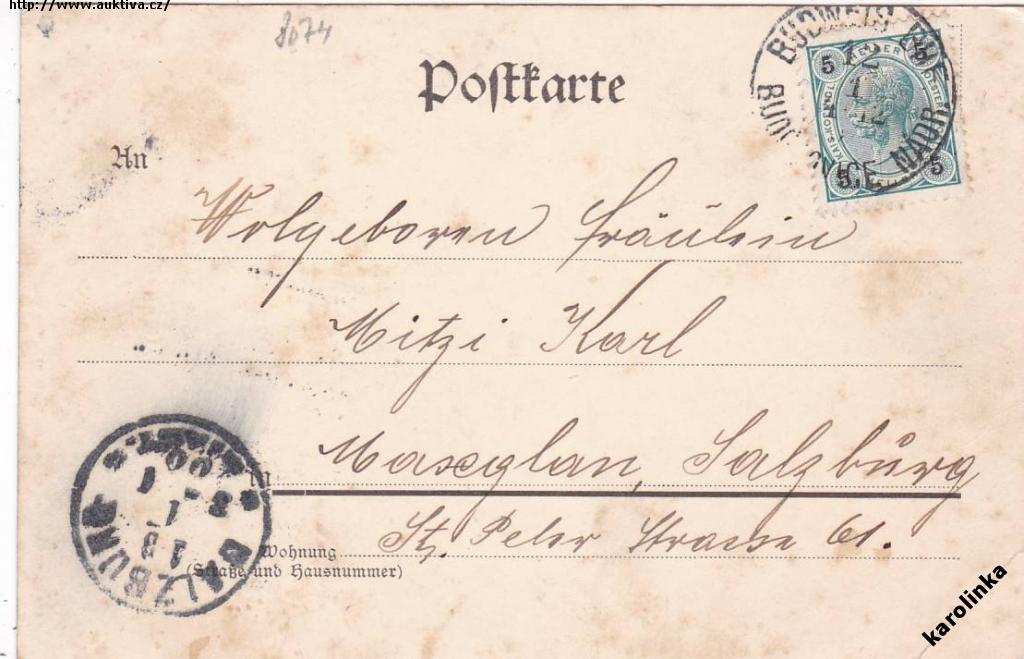 http://www.auktiva.cz/
8074
Postkarte
BUDWEIS
BUDĚJOVICE NÁDR.
5 HELLER 5
5 5
An
Wolgeboren Fräulein
Mitzi Karl
in Maxglan, Salzburg
St. Peter Strasse 61.
Wohnung
(Straße und Hausnummer)
SALZBURG
karolinka